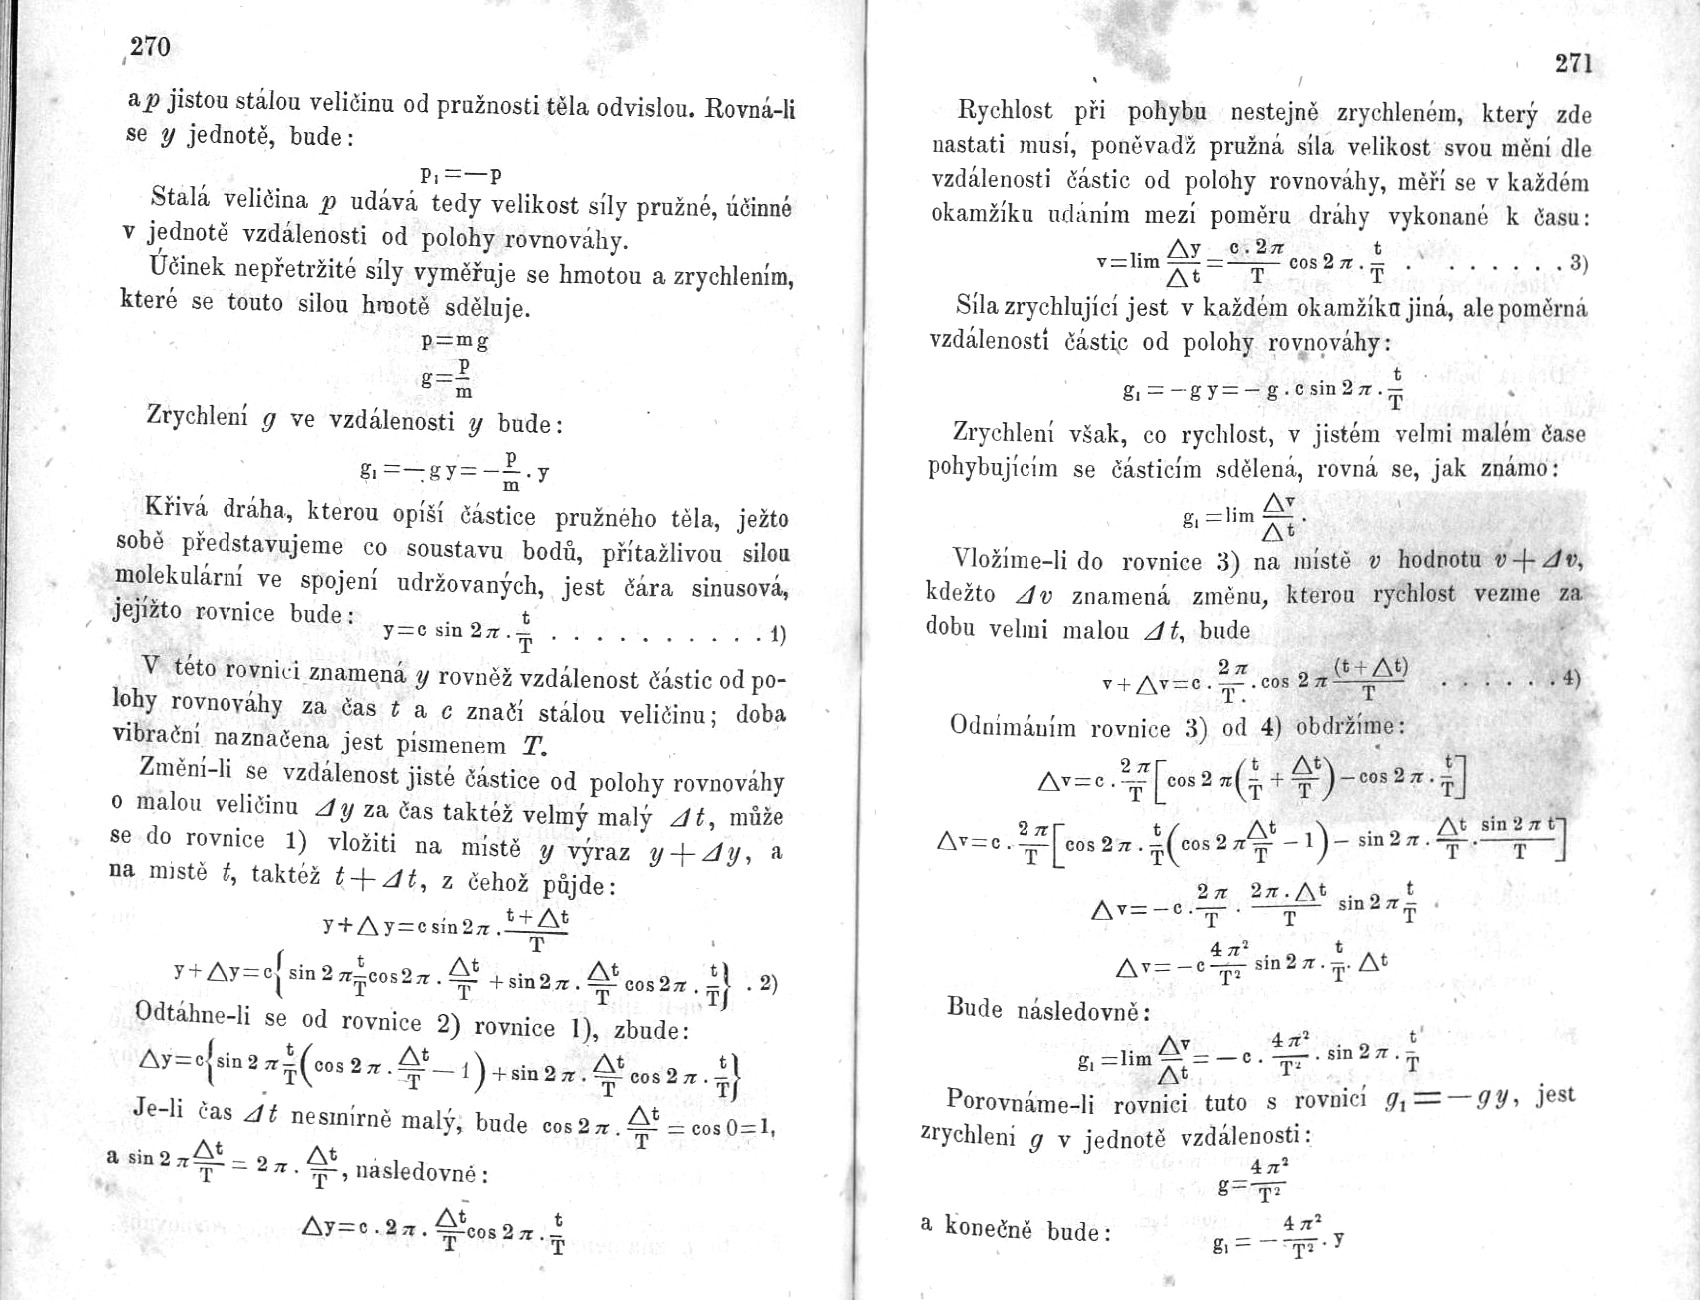 270
a p jistou stálou veličinu od pružnosti těla odvislou. Rovná-li
se y jednotě, bude:
p₁=—p
Stalá veličina p udává tedy velikost síly pružné, účinné
v jednotě vzdálenosti od polohy rovnováhy.
Účinek nepřetržité síly vyměřuje se hmotou a zrychlením,
které se touto silou hmotě sděluje.
p=mg
g=p/m
Zrychlení g ve vzdálenosti y bude:
g₁=—gy=—p/m.y
Křivá dráha, kterou opíší částice pružného těla, ježto
sobě představujeme co soustavu bodů, přítažlivou silou
molekulární ve spojení udržovaných, jest čára sinusová,
jejížto rovnice bude:
y=c sin 2π.t/T . . . . . . . . . . 1)
V této rovnici znamená y rovněž vzdálenost částic od po-
lohy rovnováhy za čas t a c značí stálou veličinu; doba
vibrační naznačena jest písmenem T.
Změní-li se vzdálenost jisté částice od polohy rovnováhy
o malou veličinu Δy za čas taktéž velmý malý Δt, může
se do rovnice 1) vložiti na místě y výraz y+Δy, a
na místě t, taktéž t+Δt, z čehož půjde:
y+Δy=c sin 2π.(t+Δt)/T
y+Δy=c{sin 2π t/T cos 2π.Δt/T + sin 2π.Δt/T cos 2π.t/T} . 2)
Odtáhne-li se od rovnice 2) rovnice 1), zbude:
Δy=c{sin 2π t/T(cos 2π.Δt/T—1)+sin 2π.Δt/T cos 2π.t/T}
Je-li čas Δt nesmírně malý, bude cos 2π.Δt/T = cos 0=1,
a sin 2π Δt/T = 2π.Δt/T, následovně:
Δy=c.2π.Δt/T cos 2π.t/T
271
Rychlost při pohybu nestejně zrychleném, který zde
nastati musí, poněvadž pružná síla velikost svou mění dle
vzdálenosti částic od polohy rovnováhy, měří se v každém
okamžíku udáním mezí poměru dráhy vykonané k času:
v=lim Δy/Δt=c.2π/T cos 2π.t/T . . . . . . . 3)
Síla zrychlující jest v každém okamžíku jiná, ale poměrná
vzdálenosti částic od polohy rovnováhy:
g₁=—gy=—g.c sin 2π.t/T
Zrychlení však, co rychlost, v jistém velmi malém čase
pohybujícím se částicím sdělená, rovná se, jak známo:
g₁=lim Δv/Δt.
Vložíme-li do rovnice 3) na místě v hodnotu v+Δv,
kdežto Δv znamená změnu, kterou rychlost vezme za
dobu velmi malou Δt, bude
v+Δv=c.2π/T.cos 2π (t+Δt)/T . . . . . . 4)
Odnímáním rovnice 3) od 4) obdržíme:
Δv=c.2π/T[cos 2π(t/T+Δt/T)—cos 2π.t/T]
Δv=c.2π/T[cos 2π.t/T(cos 2π Δt/T—1)—sin 2π.Δt/T.sin 2π t/T]
Δv=—c.2π/T.2π.Δt/T sin 2π t/T
Δv=—c 4π²/T² sin 2π.t/T.Δt
Bude následovně:
g₁=lim Δv/Δt=—c.4π²/T².sin 2π.t/T
Porovnáme-li rovnici tuto s rovnicí g₁=—gy, jest
zrychlení g v jednotě vzdálenosti:
g=4π²/T²
a konečně bude: g₁=—4π²/T².y